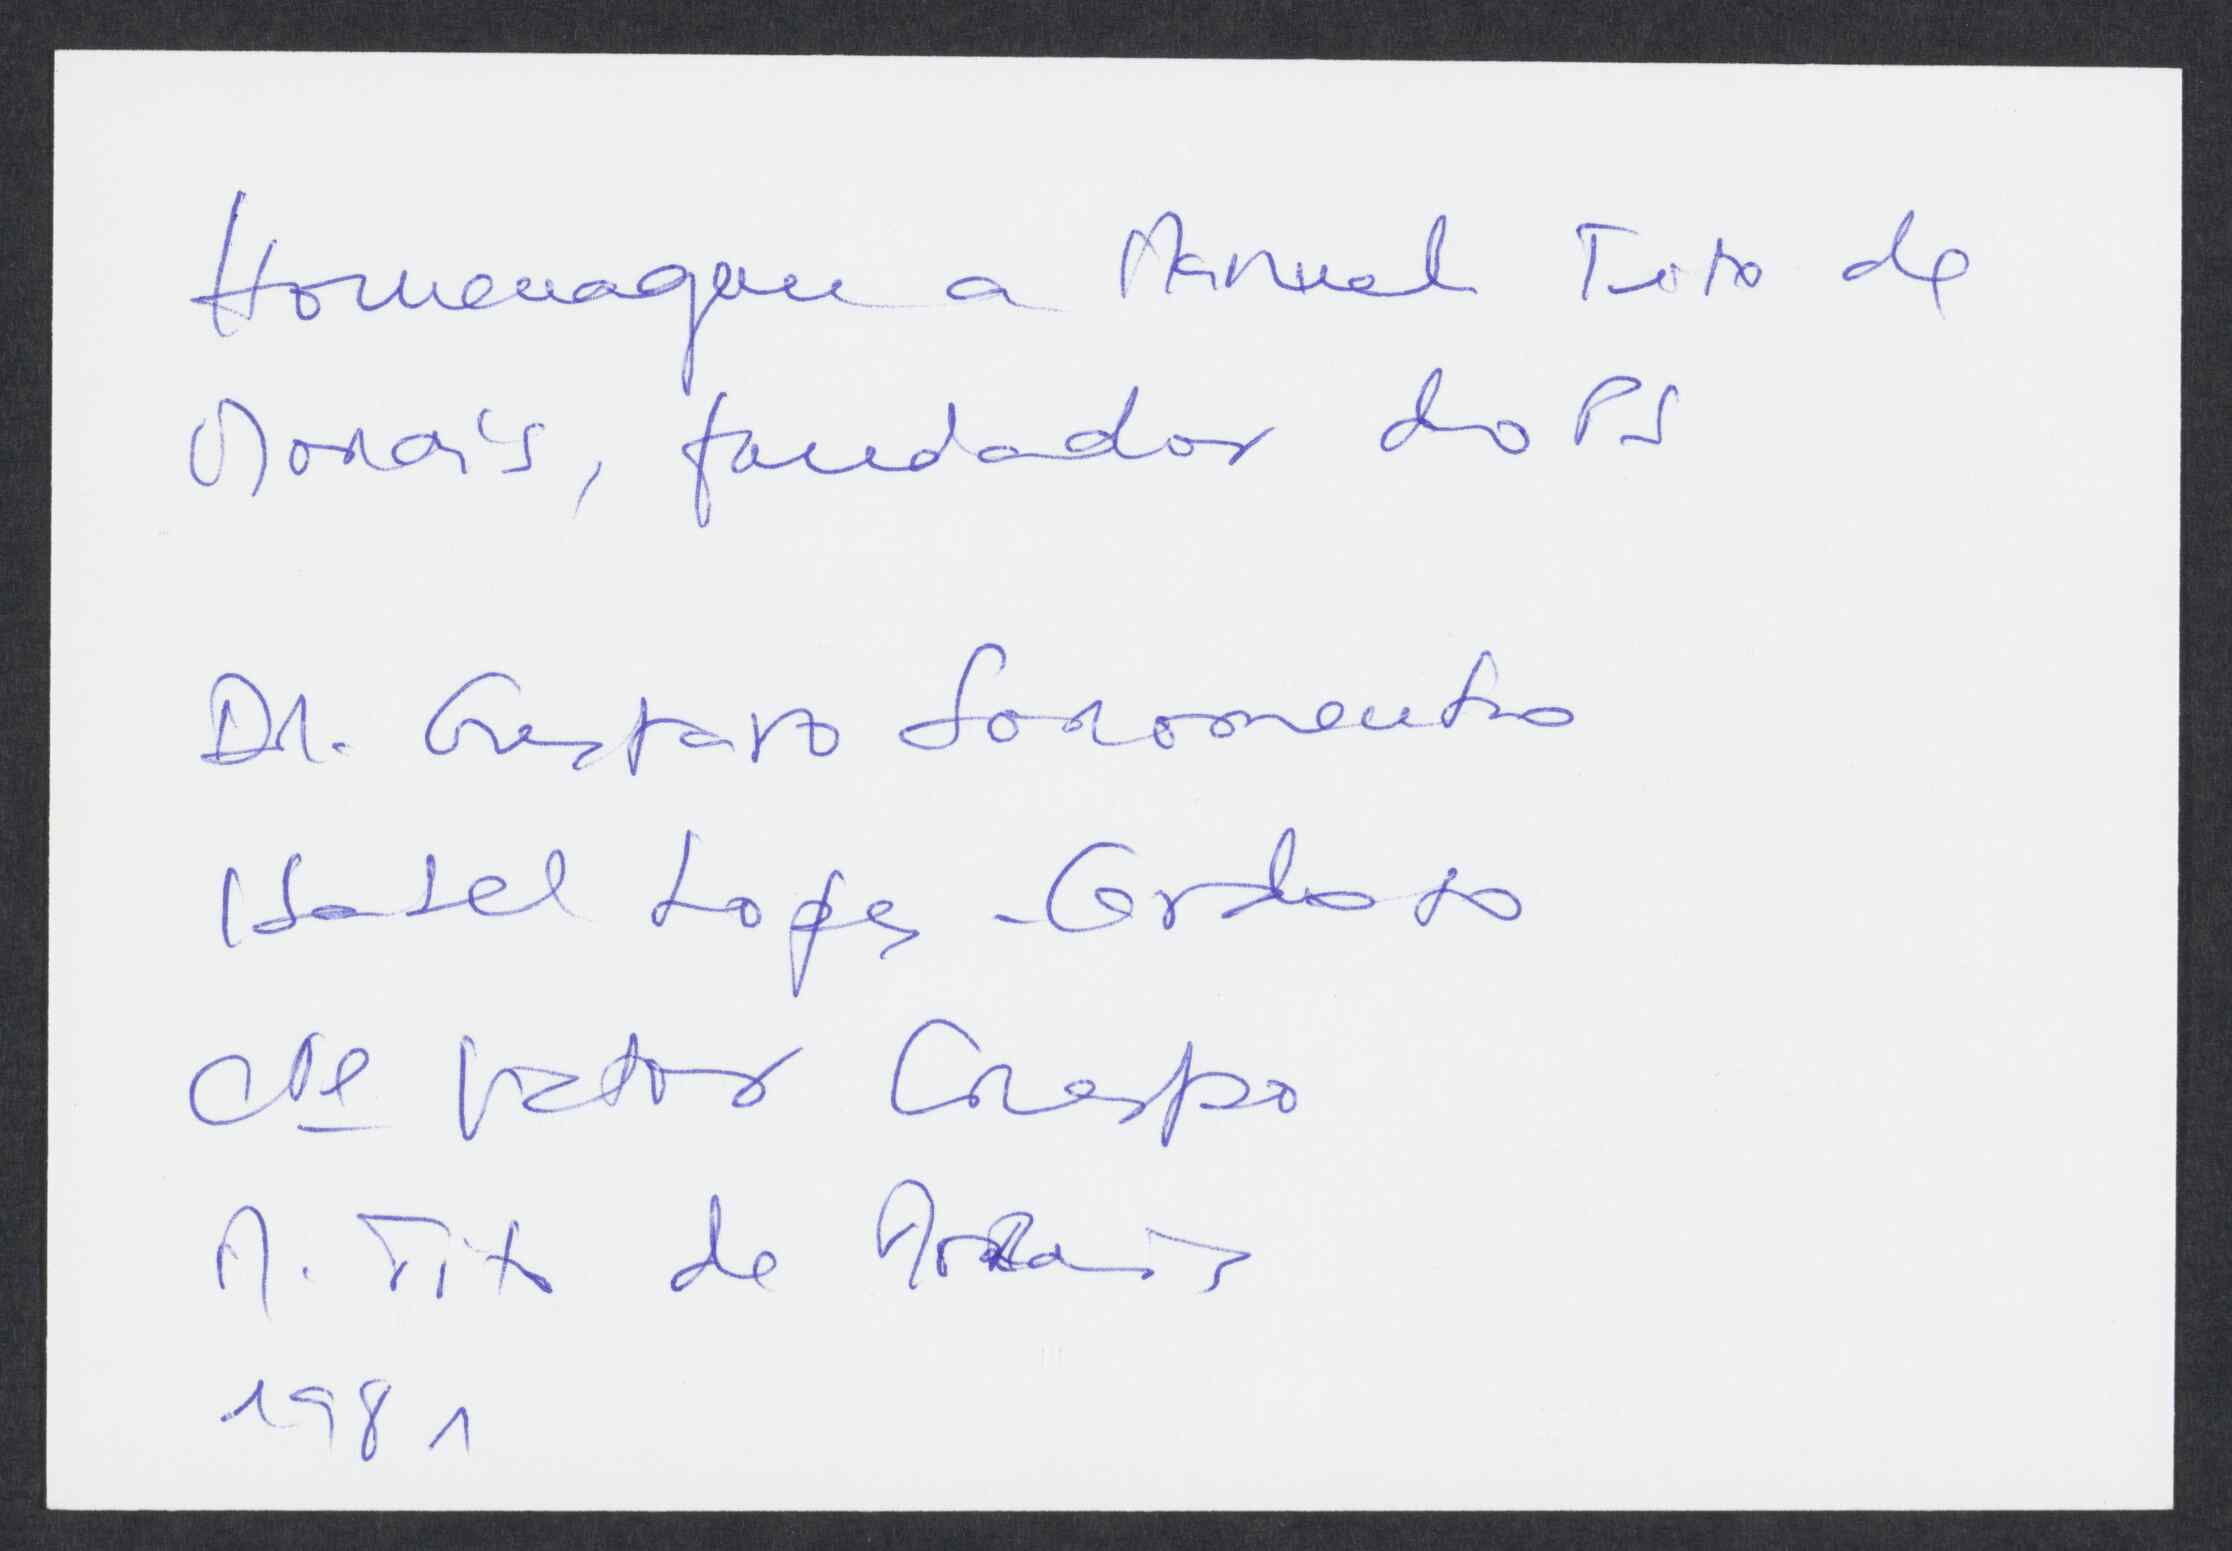 Homenagem a Manuel Tito de
Morais, fundador do PS
Dr. Gustavo Soromenho
Isabel Lopes Cardoso
Cte Victor Crespo
M. Tito de Morais
1981